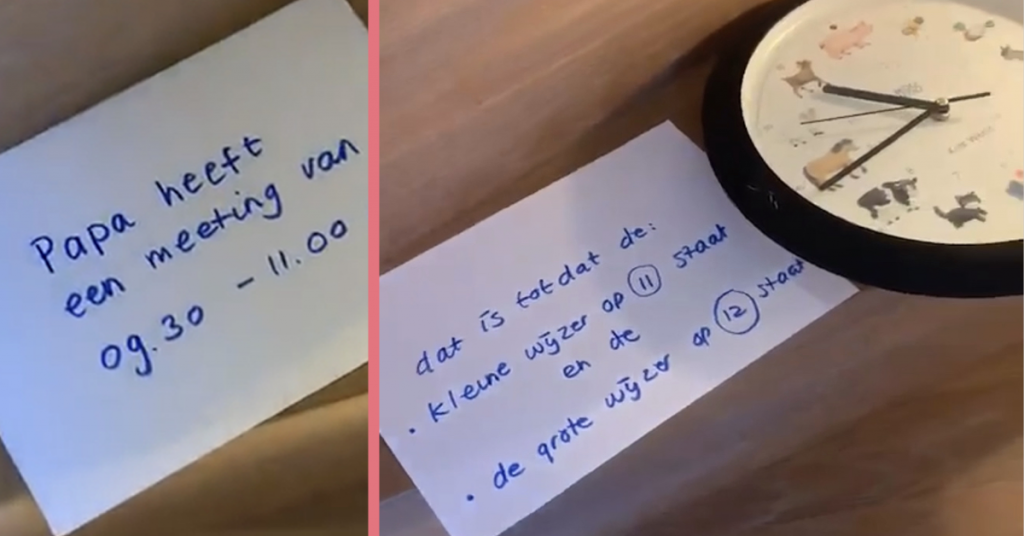 Papa heeft
een meeting van
09.30 - 11.00
dat is totdat de:
• kleine wijzer op 11 staat
en de
• de grote wijzer op 12 staat